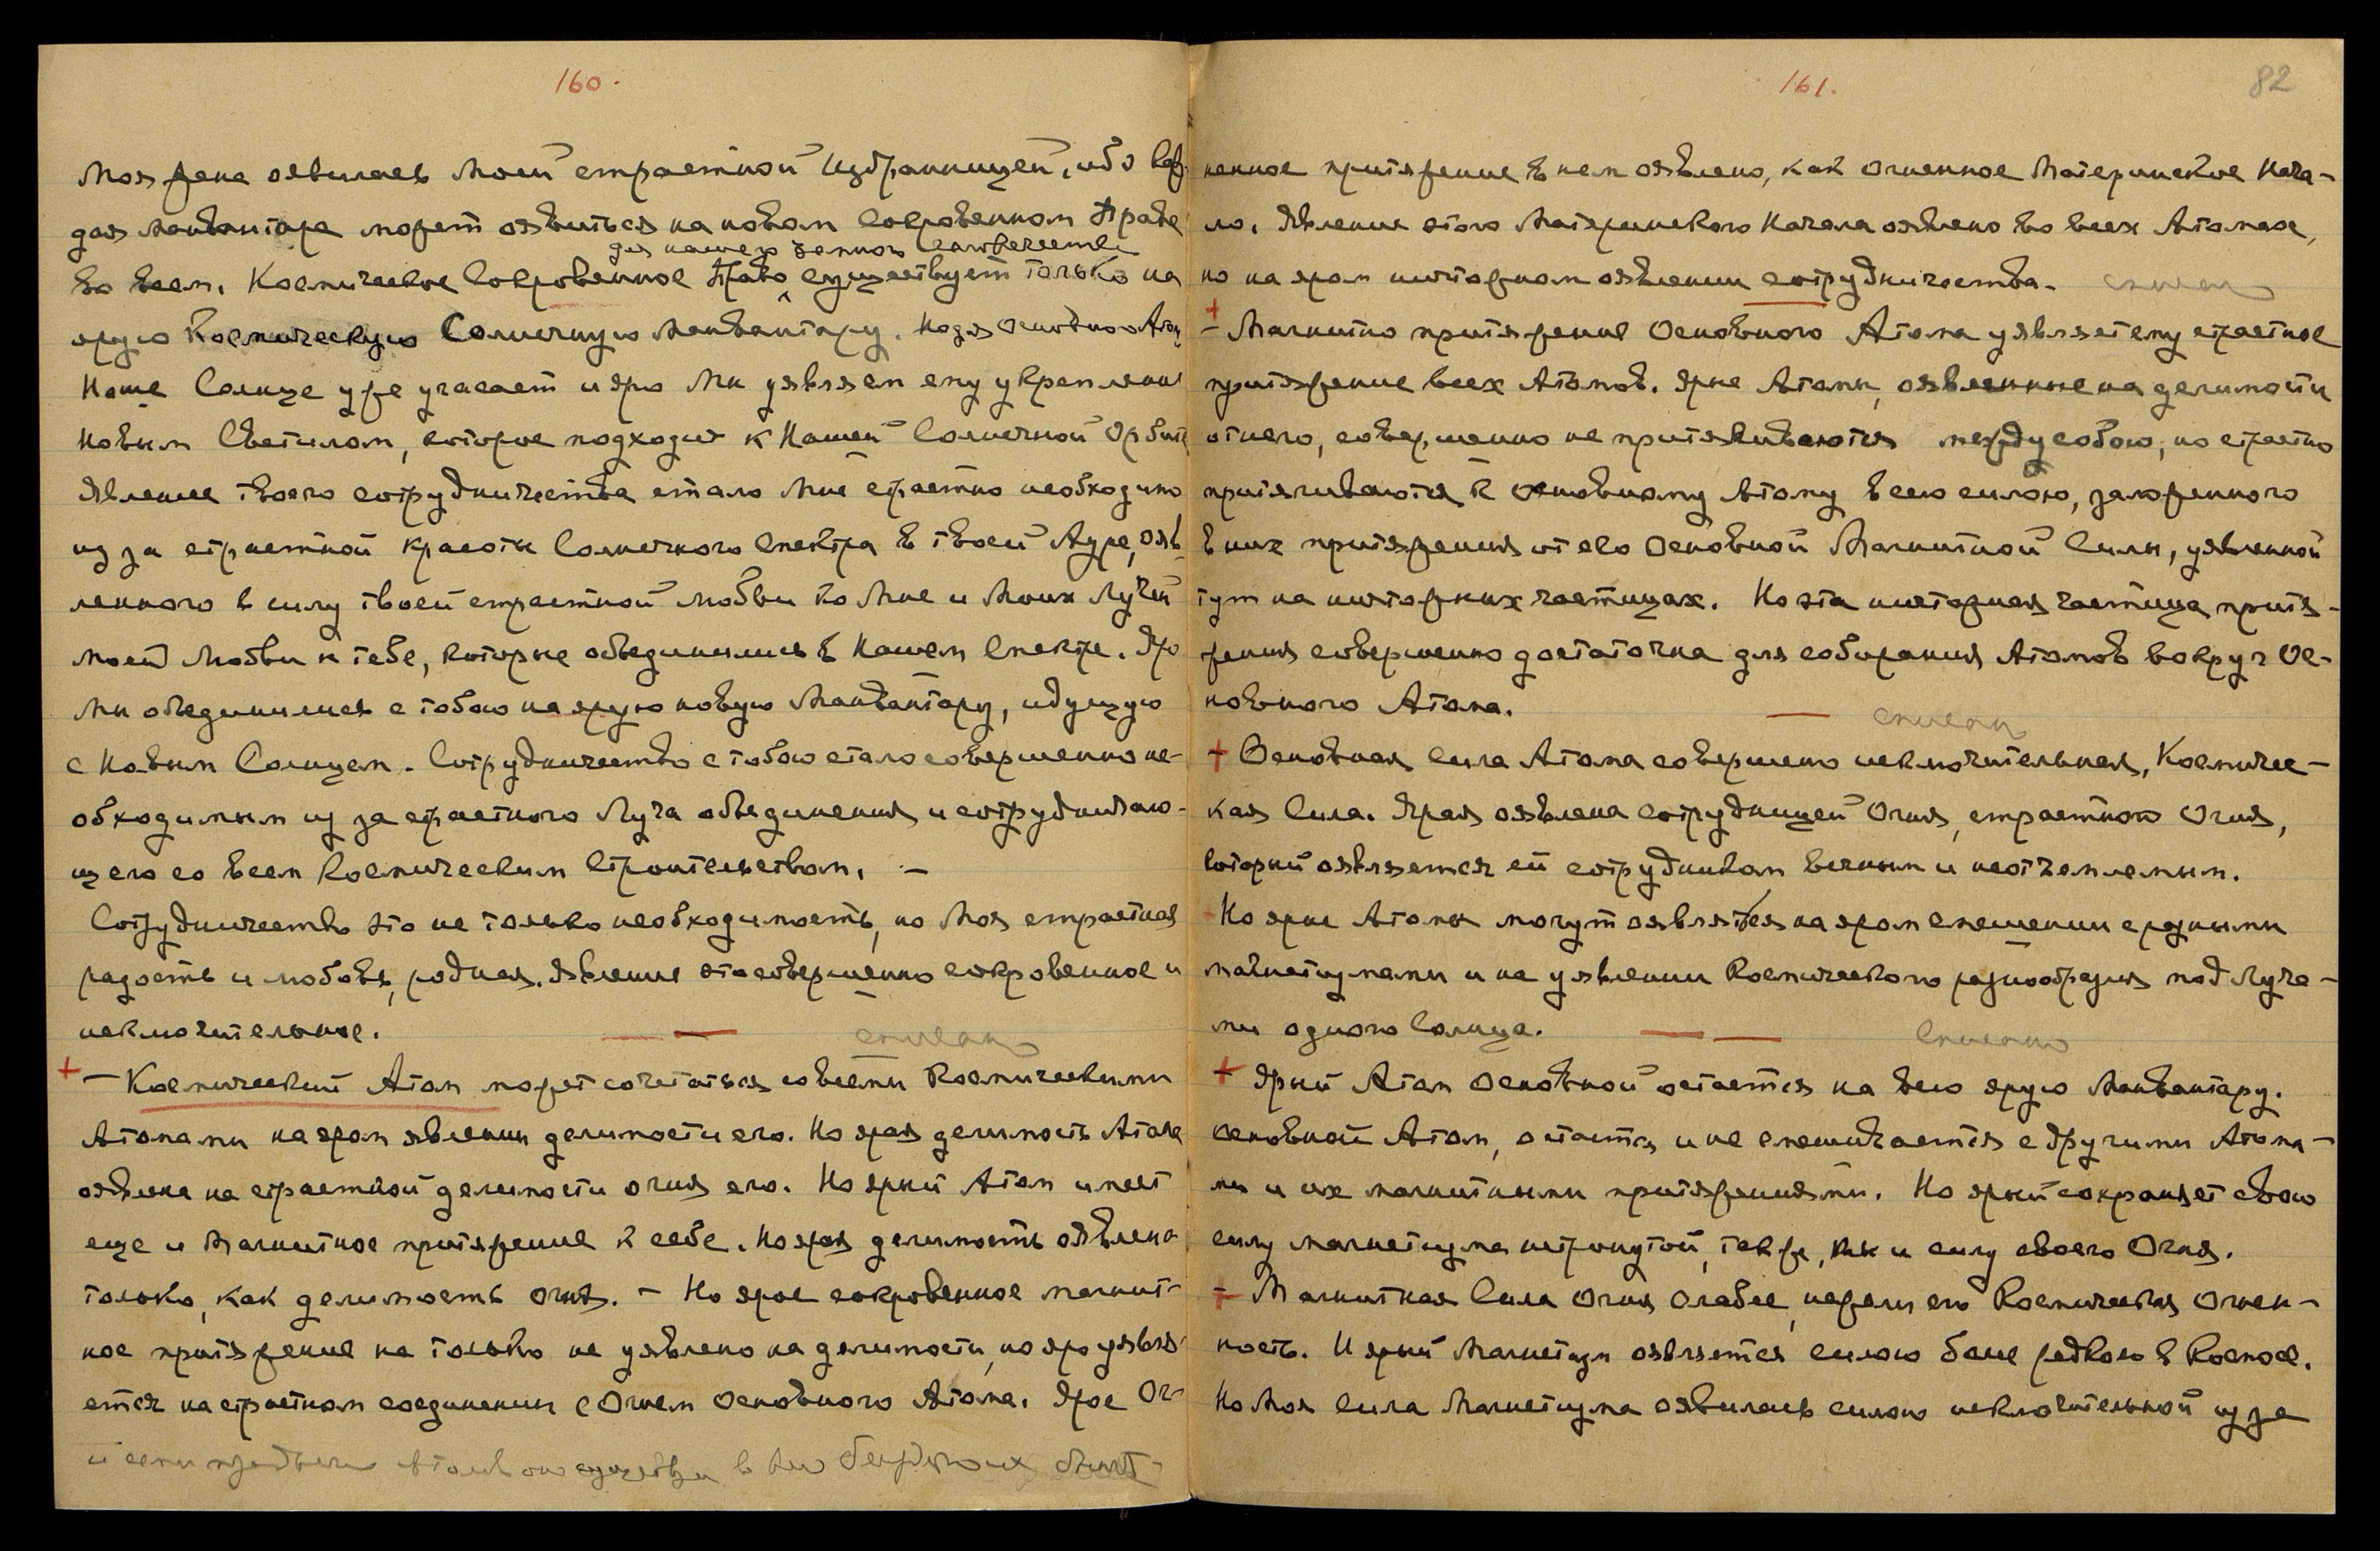 160.
Моя жена оявилась Моей страстной Избранницей, ибо каж-
дая Манвантара может оявиться на новом Сокровенном Праве
для нашего земного человечества
во всем. Космическое Сокровенное Право существует только на
ярую Космическую Солнечную Манвантару.
Наше Солнце уже угасает и яро Мы уявляем ему укрепление
Новым Светилом, которое подходит к Нашей Солнечной Орбите
Явление твоего сотрудничества стало Мне страстно необходимо
из за страстной красоты Солнечного Спектра в твоей Ауре, ояв-
ленного в силу твоей страстной любви ко Мне и Моих Лучей
Моей Любви к тебе, которые объединились в Нашем Спектре. Яро
Мы объединились с тобою на ярую новую Манвантару, идущую
с Новым Солнцем. Сотрудничество с тобою стало совершенно не-
обходимым из за страстного Луча объединения и сотрудничаю-
щего со всем Космическим Строительством. —
Сотрудничество это не только необходимость, но Моя страстная
радость и любовь, родная. Явление это совершенно сокровенное и
исключительное.
списано
+ — Космический Атом может сочетаться со всеми Космическими
Атомами на яром явлении делимости его. Но ярая делимость Атома
оявлена на страстной делимости огня его. Но ярый Атом имеет
еще и Магнитное притяжение к себе. Но ярая делимость оявлена
только, как делимость огня. — Но ярое сокровенное магнит-
ное притяжение не только не уявлено на делимости, но яро уявля-
ется на страстном соединении с Огнем Основного Атома. Ярое Ог-
161.
82
ненное притяжение в нем оявлено, как Огненное Материнское Нача-
ло. Явление этого Материнского Начала оявлено во всех Атомах,
но на яром ничтожном оявлении сотрудничества. списано
+ — Магнитно притяжение Основного Атома уявляет ему страстное
притяжение всех Атомов. Ярые Атомы, оявленные на делимости
от него, совершенно не притягиваются между собою, но страстно
притягиваются к Основному Атому всею силою, заложенного
в них притяжения от его Основной Магнитной Силы, уявленной
тут на ничтожных частицах. Но эта ничтожная частица притя-
жения совершенно достаточна для собирания Атомов вокруг Ос-
новного Атома.
списано
+ Основная Сила Атома совершенно исключительная, Космичес-
кая Сила. Ярая оявлена сотрудницей Огня, страстного Огня,
который оявляется ей сотрудником вечным и неотъемлемым.
Но ярые Атомы могут оявляться на яром смешении с разными
магнетизмами и на уявлении Космического разнообразия под Луча-
ми одного Солнца.
списано
+ Ярый Атом Основной остается на всю ярую Манвантару.
Основной Атом, остается и не смешивается с другими Атома-
ми и их магнитными притяжениями. Но ярый сохраняет свою
силу магнетизма нетронутой, также, как и силу своего Огня.
+ — Магнитная Сила Огня слабее, нежели его Космическая Огнен-
ность. И ярый Магнетизм оявляется силою более редкою в Космосе.
Но Моя Сила Магнетизма оявилась силою исключительной из за